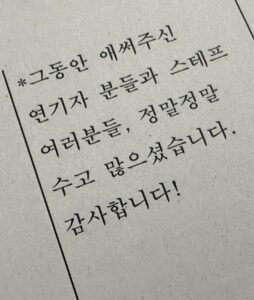 *그동안 애써주신
연기자 분들과 스테프
여러분들, 정말정말
수고 많으셨습니다.
감사합니다!